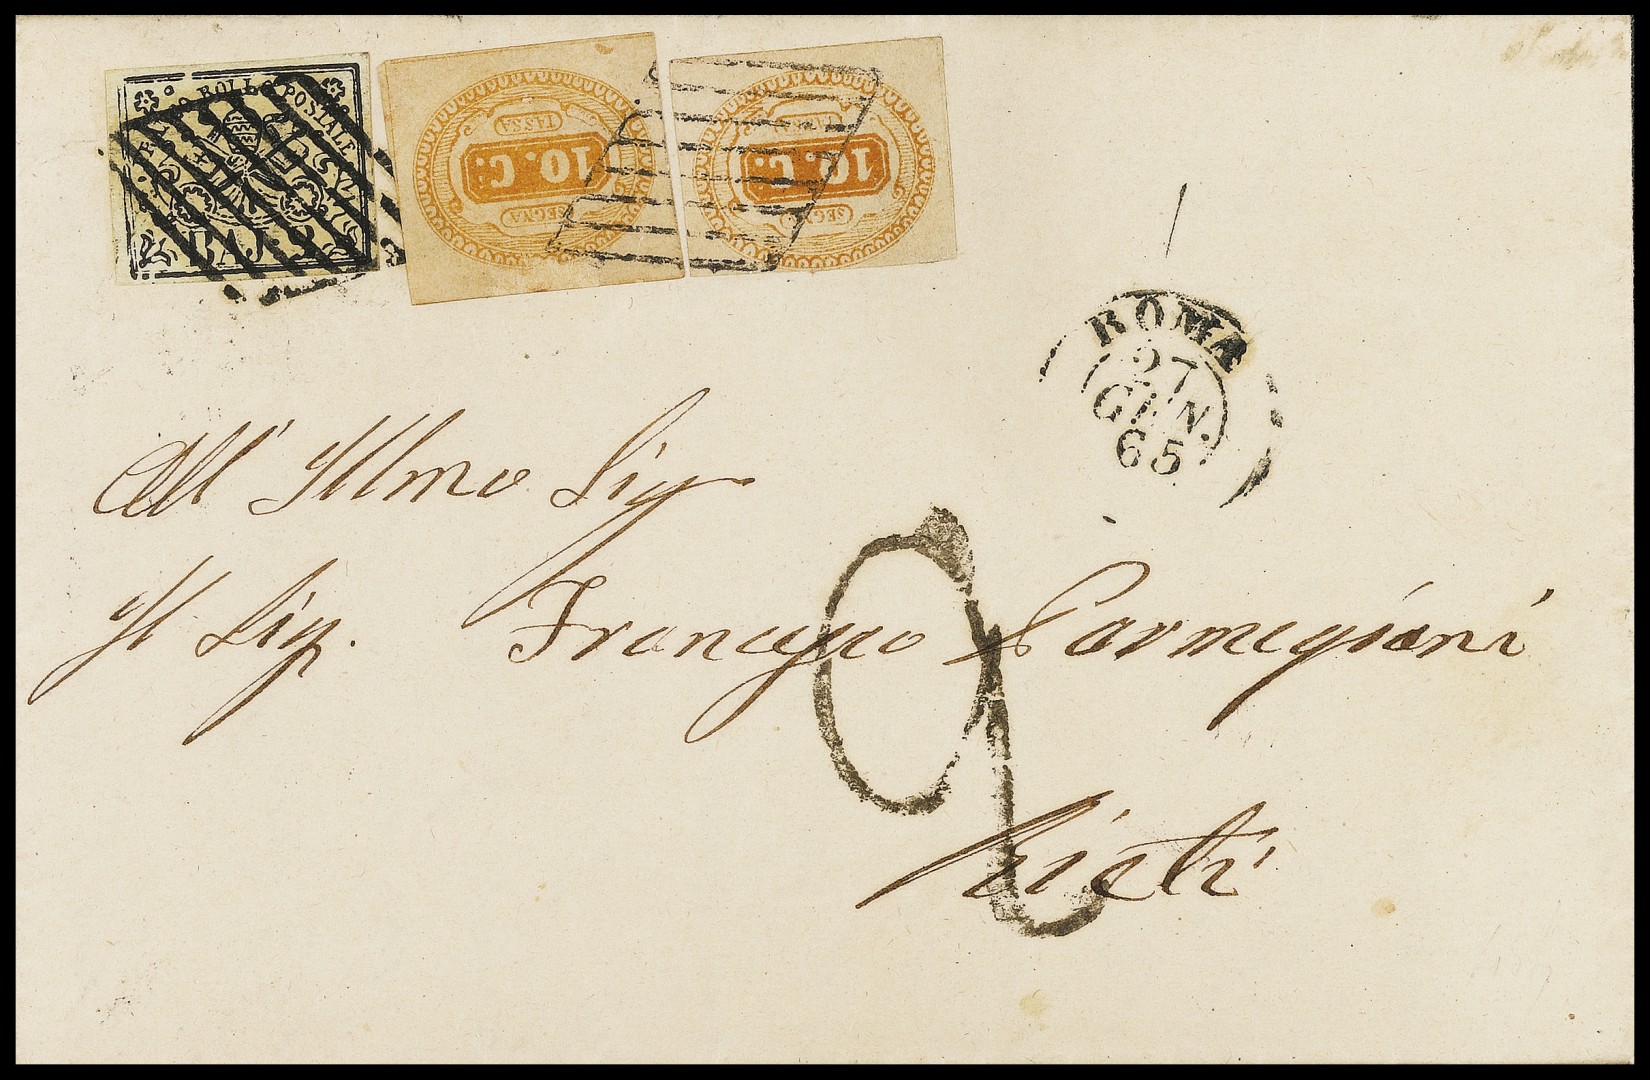 BOLLO POSTALE
BAJ. 2
TASSA
10. C.
SEGNA
TASSA
10. C.
SEGNA
ROMA
27
GEN.
65
All' Illmo Sig
Il Sig. Francesco Parmegiani
Rieti
2